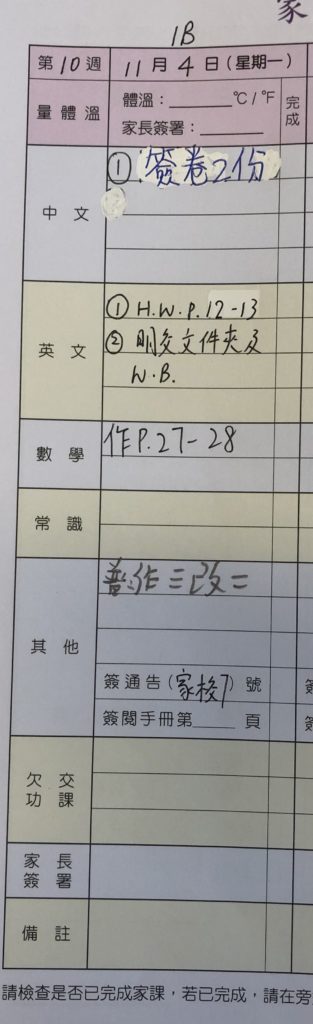 家
1B
第10週 11月4日(星期一)
量體溫 體溫:______℃/℉ 完成
家長簽署:______
中文 ① 簽卷2份
英文 ① H.W. P.12-13
② 明交文件夾及
W.B.
數學 作P.27-28
常識
其他 普:作三改二
簽通告(家校7)號
簽閱手冊第____頁
欠交功課
家長簽署
備註
請檢查是否已完成家課,若已完成,請在旁